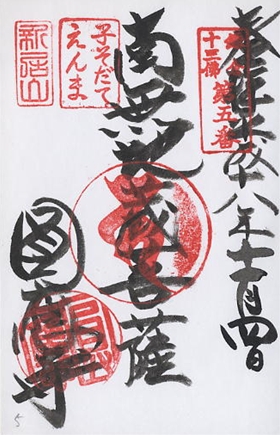 奉拝平成十八年十一月四日
鎌倉
十三佛
第五番
南無地蔵菩薩
子そだて
えんま
新居山
圓應寺